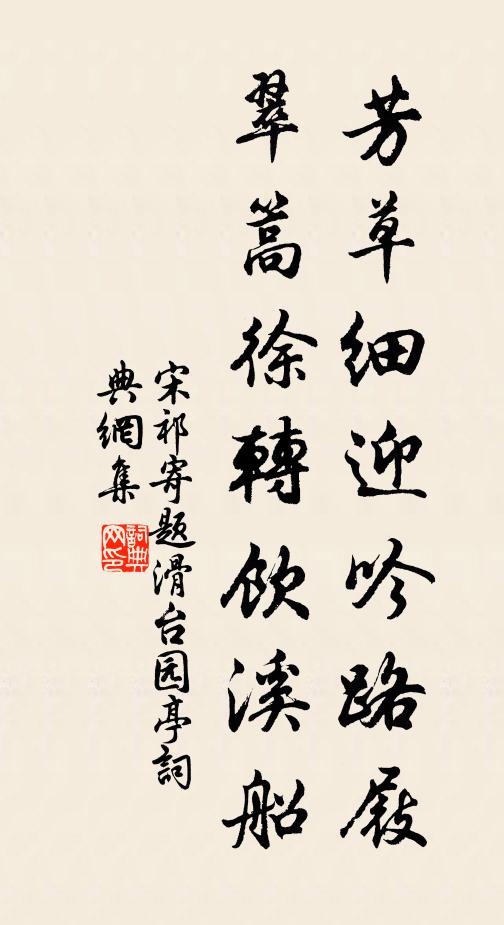 芳草细迎吟路屐
翠篙徐轉飲溪船
宋祁寄题滑台园亭詞
典網集
詞典网印